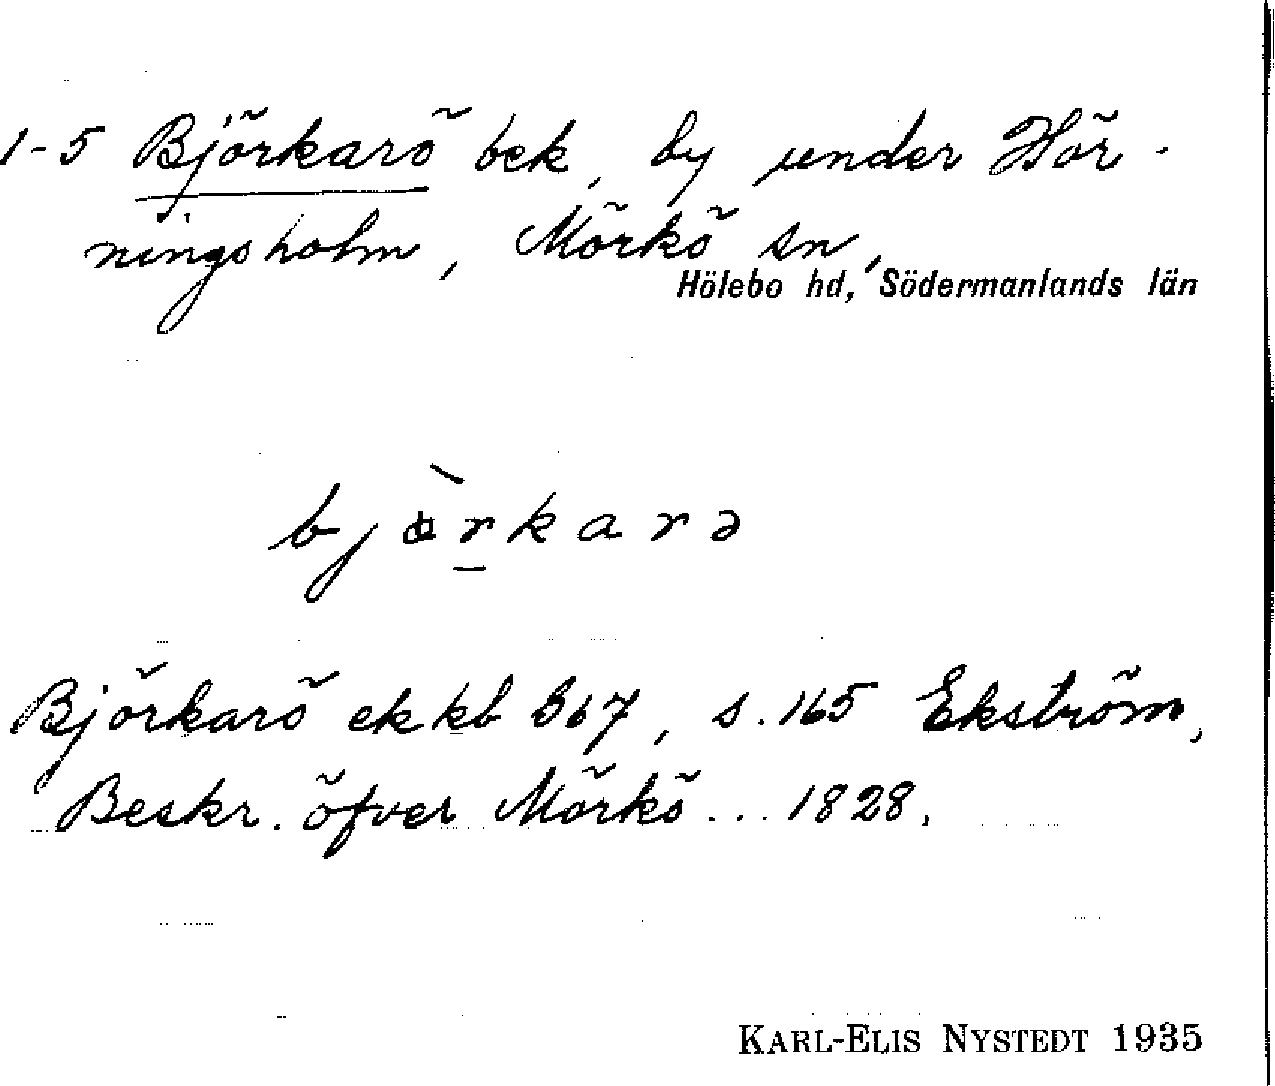 1-5 Björkarö bek, by under Hör-
ningsholm, Mörkö sn,
Hölebo hd, Södermanlands län
Björkarö ekkb 567, s. 165 Ekström,
Beskr. öfver Mörkö... 1828.
KARL-ELIS NYSTEDT 1935